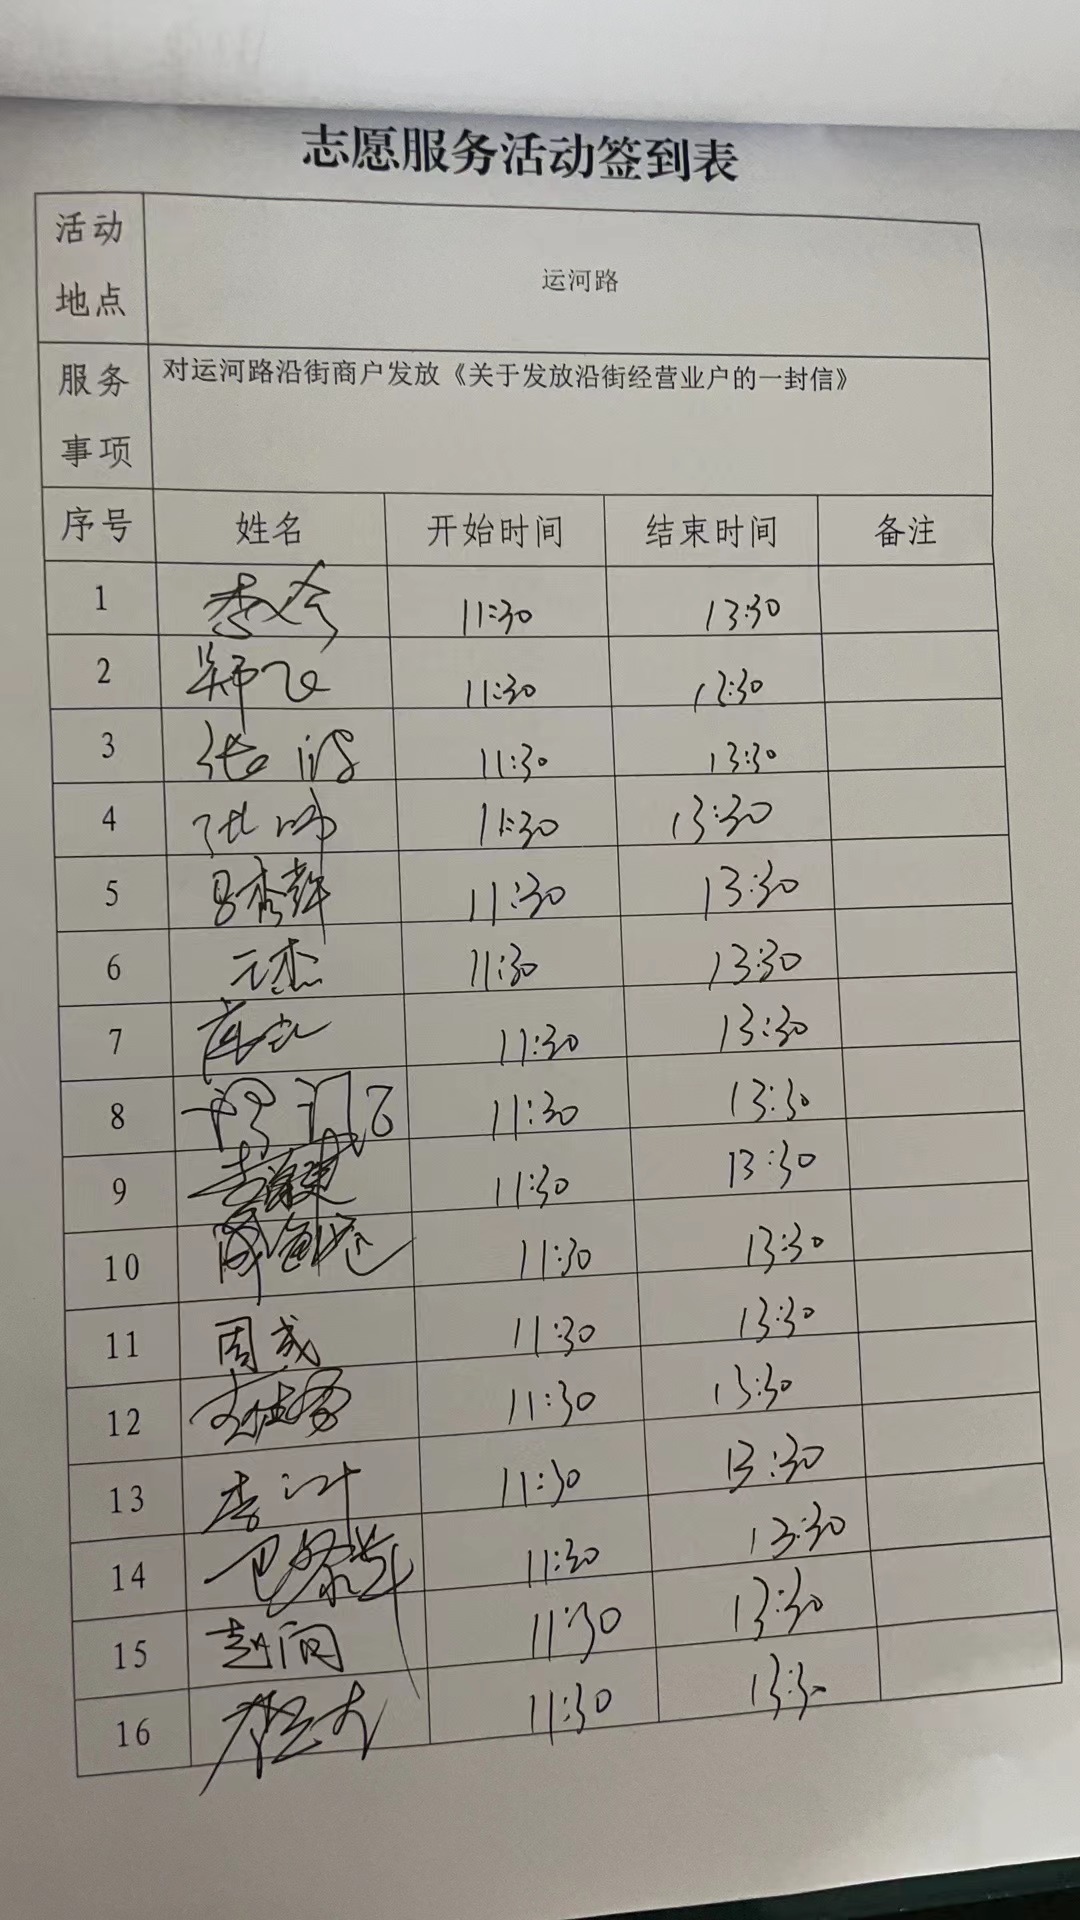 志愿服务活动签到表
活动地点 运河路
服务事项 对运河路沿街商户发放《关于发放沿街经营业户的一封信》
序号 姓名 开始时间 结束时间 备注
1 11:30 13:30
2 郑飞 11:30 13:30
3 张波 11:30 13:30
4 11:30 13:30
5 吕秀辉 11:30 13:30
6 元杰 11:30 13:30
7 11:30 13:30
8 11:30 13:30
9 11:30 13:30
10 11:30 13:30
11 周成 11:30 13:30
12 11:30 13:30
13 李 11:30 13:30
14 11:30 13:30
15 赵闯 11:30 13:30
16 11:30 13:30